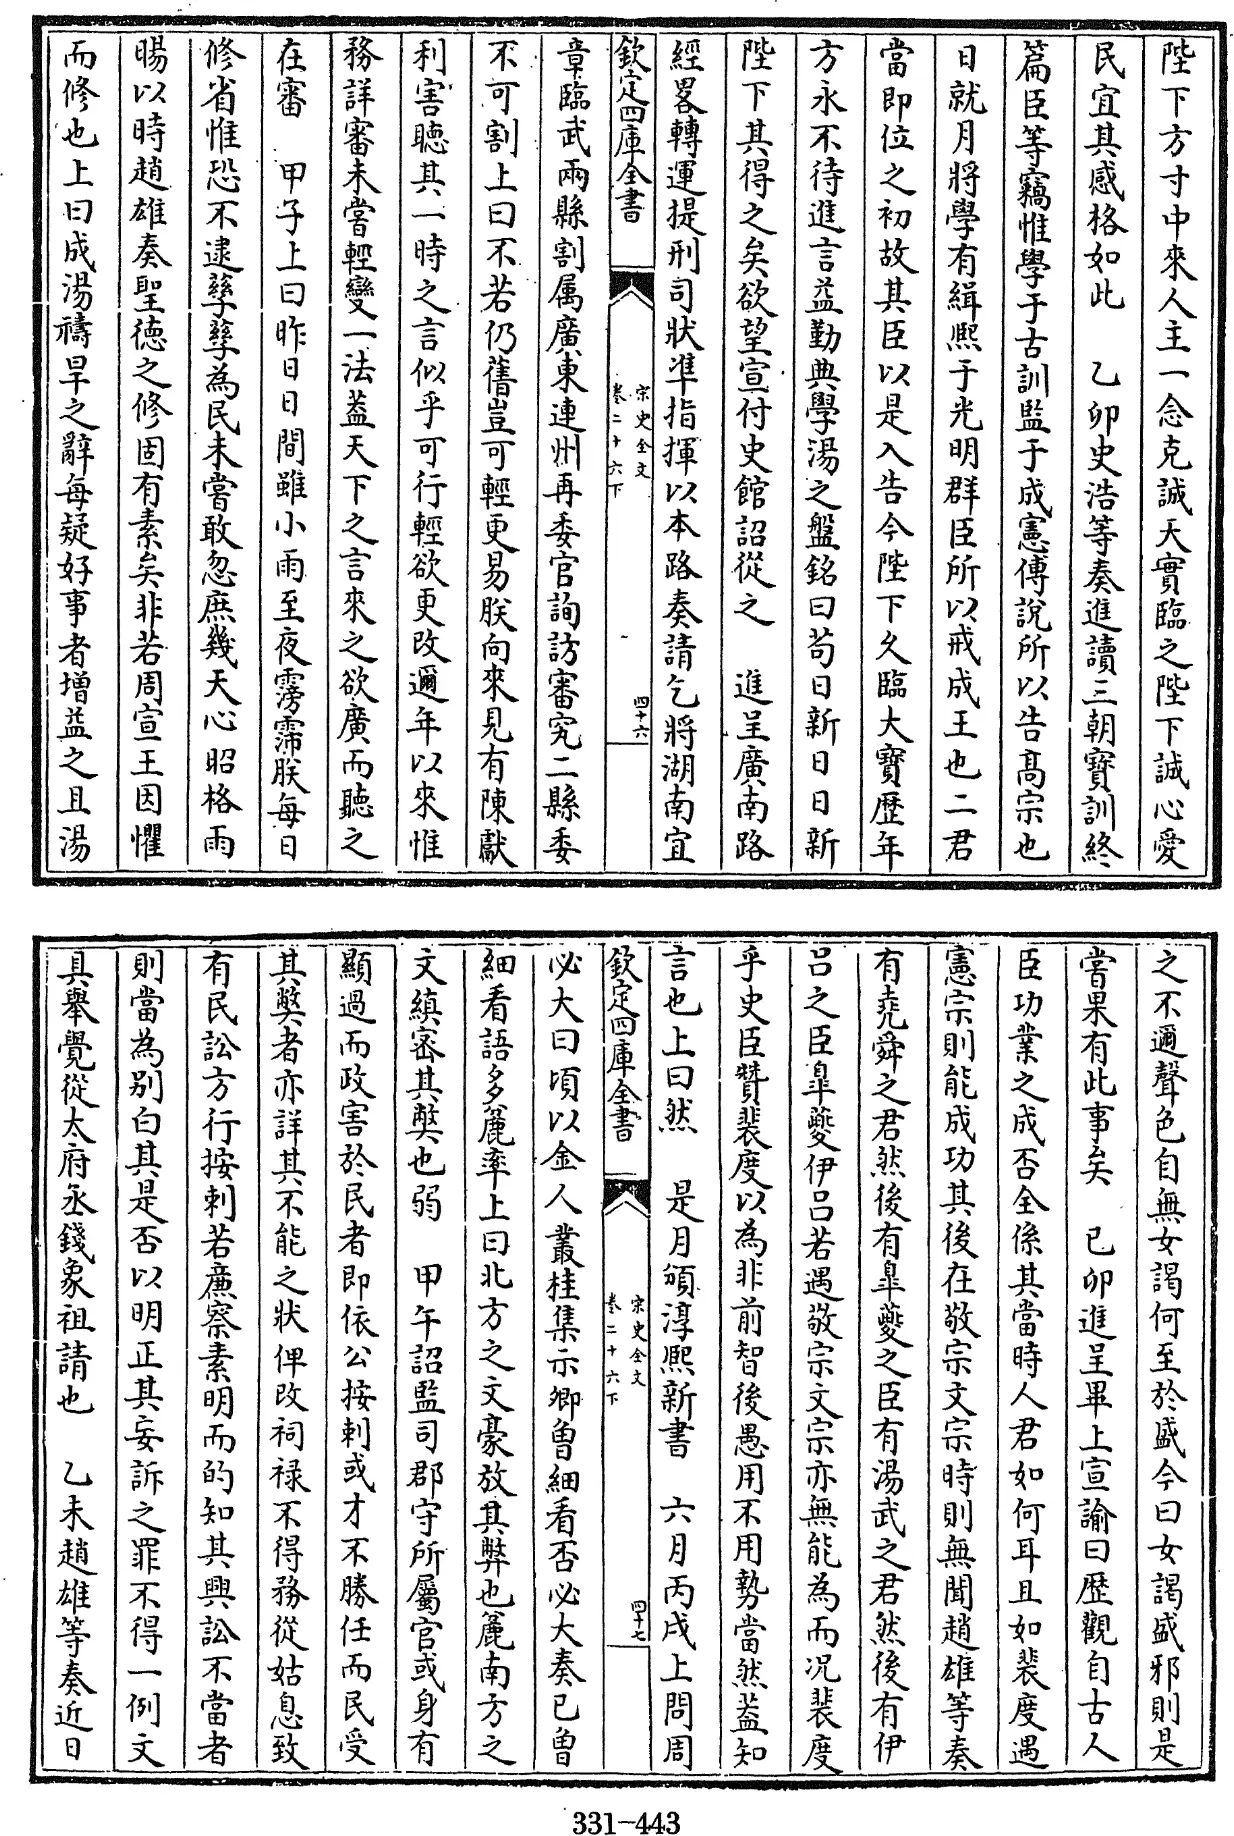 陛下方寸中來人主一念克誠天實臨之陛下誠心愛
民宜其感格如此　乙卯史浩等奏進讀三朝寶訓終
篇臣等竊惟學于古訓監于成憲傅說所以告髙宗也
日就月將學有緝熈于光明群臣所以戒成王也二君
當即位之初故其臣以是入告今陛下久臨大寶歴年
方永不待進言益勤典學湯之盤銘曰苟日新日日新
陛下其得之矣欲望宣付史館詔從之　進呈廣南路
經畧轉運提刑司狀凖指揮以本路奏請乞將湖南宜
欽定四庫全書
宋史全文
卷二十六下
四十六
章臨武兩縣割属廣東連州再委官詢訪審究二縣委
不可割上曰不若仍舊豈可輕更易朕向來見有陳獻
利害聽其一時之言似乎可行輕欲更改邇年以來惟
務詳審未嘗輕變一法葢天下之言來之欲廣而聽之
在審　甲子上曰昨日日間雖小雨至夜霶霈朕每日
修省惟恐不逮孳孳為民未嘗敢忽庶幾天心昭格雨
暘以時趙雄奏聖德之修固有素矣非若周宣王因懼
而修也上曰成湯禱旱之辭每疑好事者增益之且湯
之不邇聲色自無女謁何至於盛今曰女謁盛邪則是
嘗果有此事矣　己卯進呈畢上宣諭曰歴觀自古人
臣功業之成否全係其當時人君如何耳且如裴度遇
憲宗則能成功其後在敬宗文宗時則無聞趙雄等奏
有堯舜之君然後有臯夔之臣有湯武之君然後有伊
吕之臣臯夔伊吕若遇敬宗文宗亦無能為而况裴度
乎史臣贊裴度以為非前智後愚用不用勢當然葢知
言也上曰然　是月頒淳熈新書　六月丙戌上問周
欽定四庫全書
宋史全文
卷二十六下
四十七
必大曰頃以金人叢桂集示卿曽細看否必大奏已曽
細看語多麄率上曰北方之文豪放其弊也麄南方之
文縝宻其獘也弱　甲午詔監司郡守所屬官或身有
顯過而政害於民者即依公按刺或才不勝任而民受
其獘者亦詳其不能之狀俾改祠禄不得務從姑息致
有民訟方行按刺若㢘察素明而的知其興訟不當者
則當為别白其是否以明正其妄訴之罪不得一例文
具舉覺從太府丞錢象祖請也　乙未趙雄等奏近日
331-443